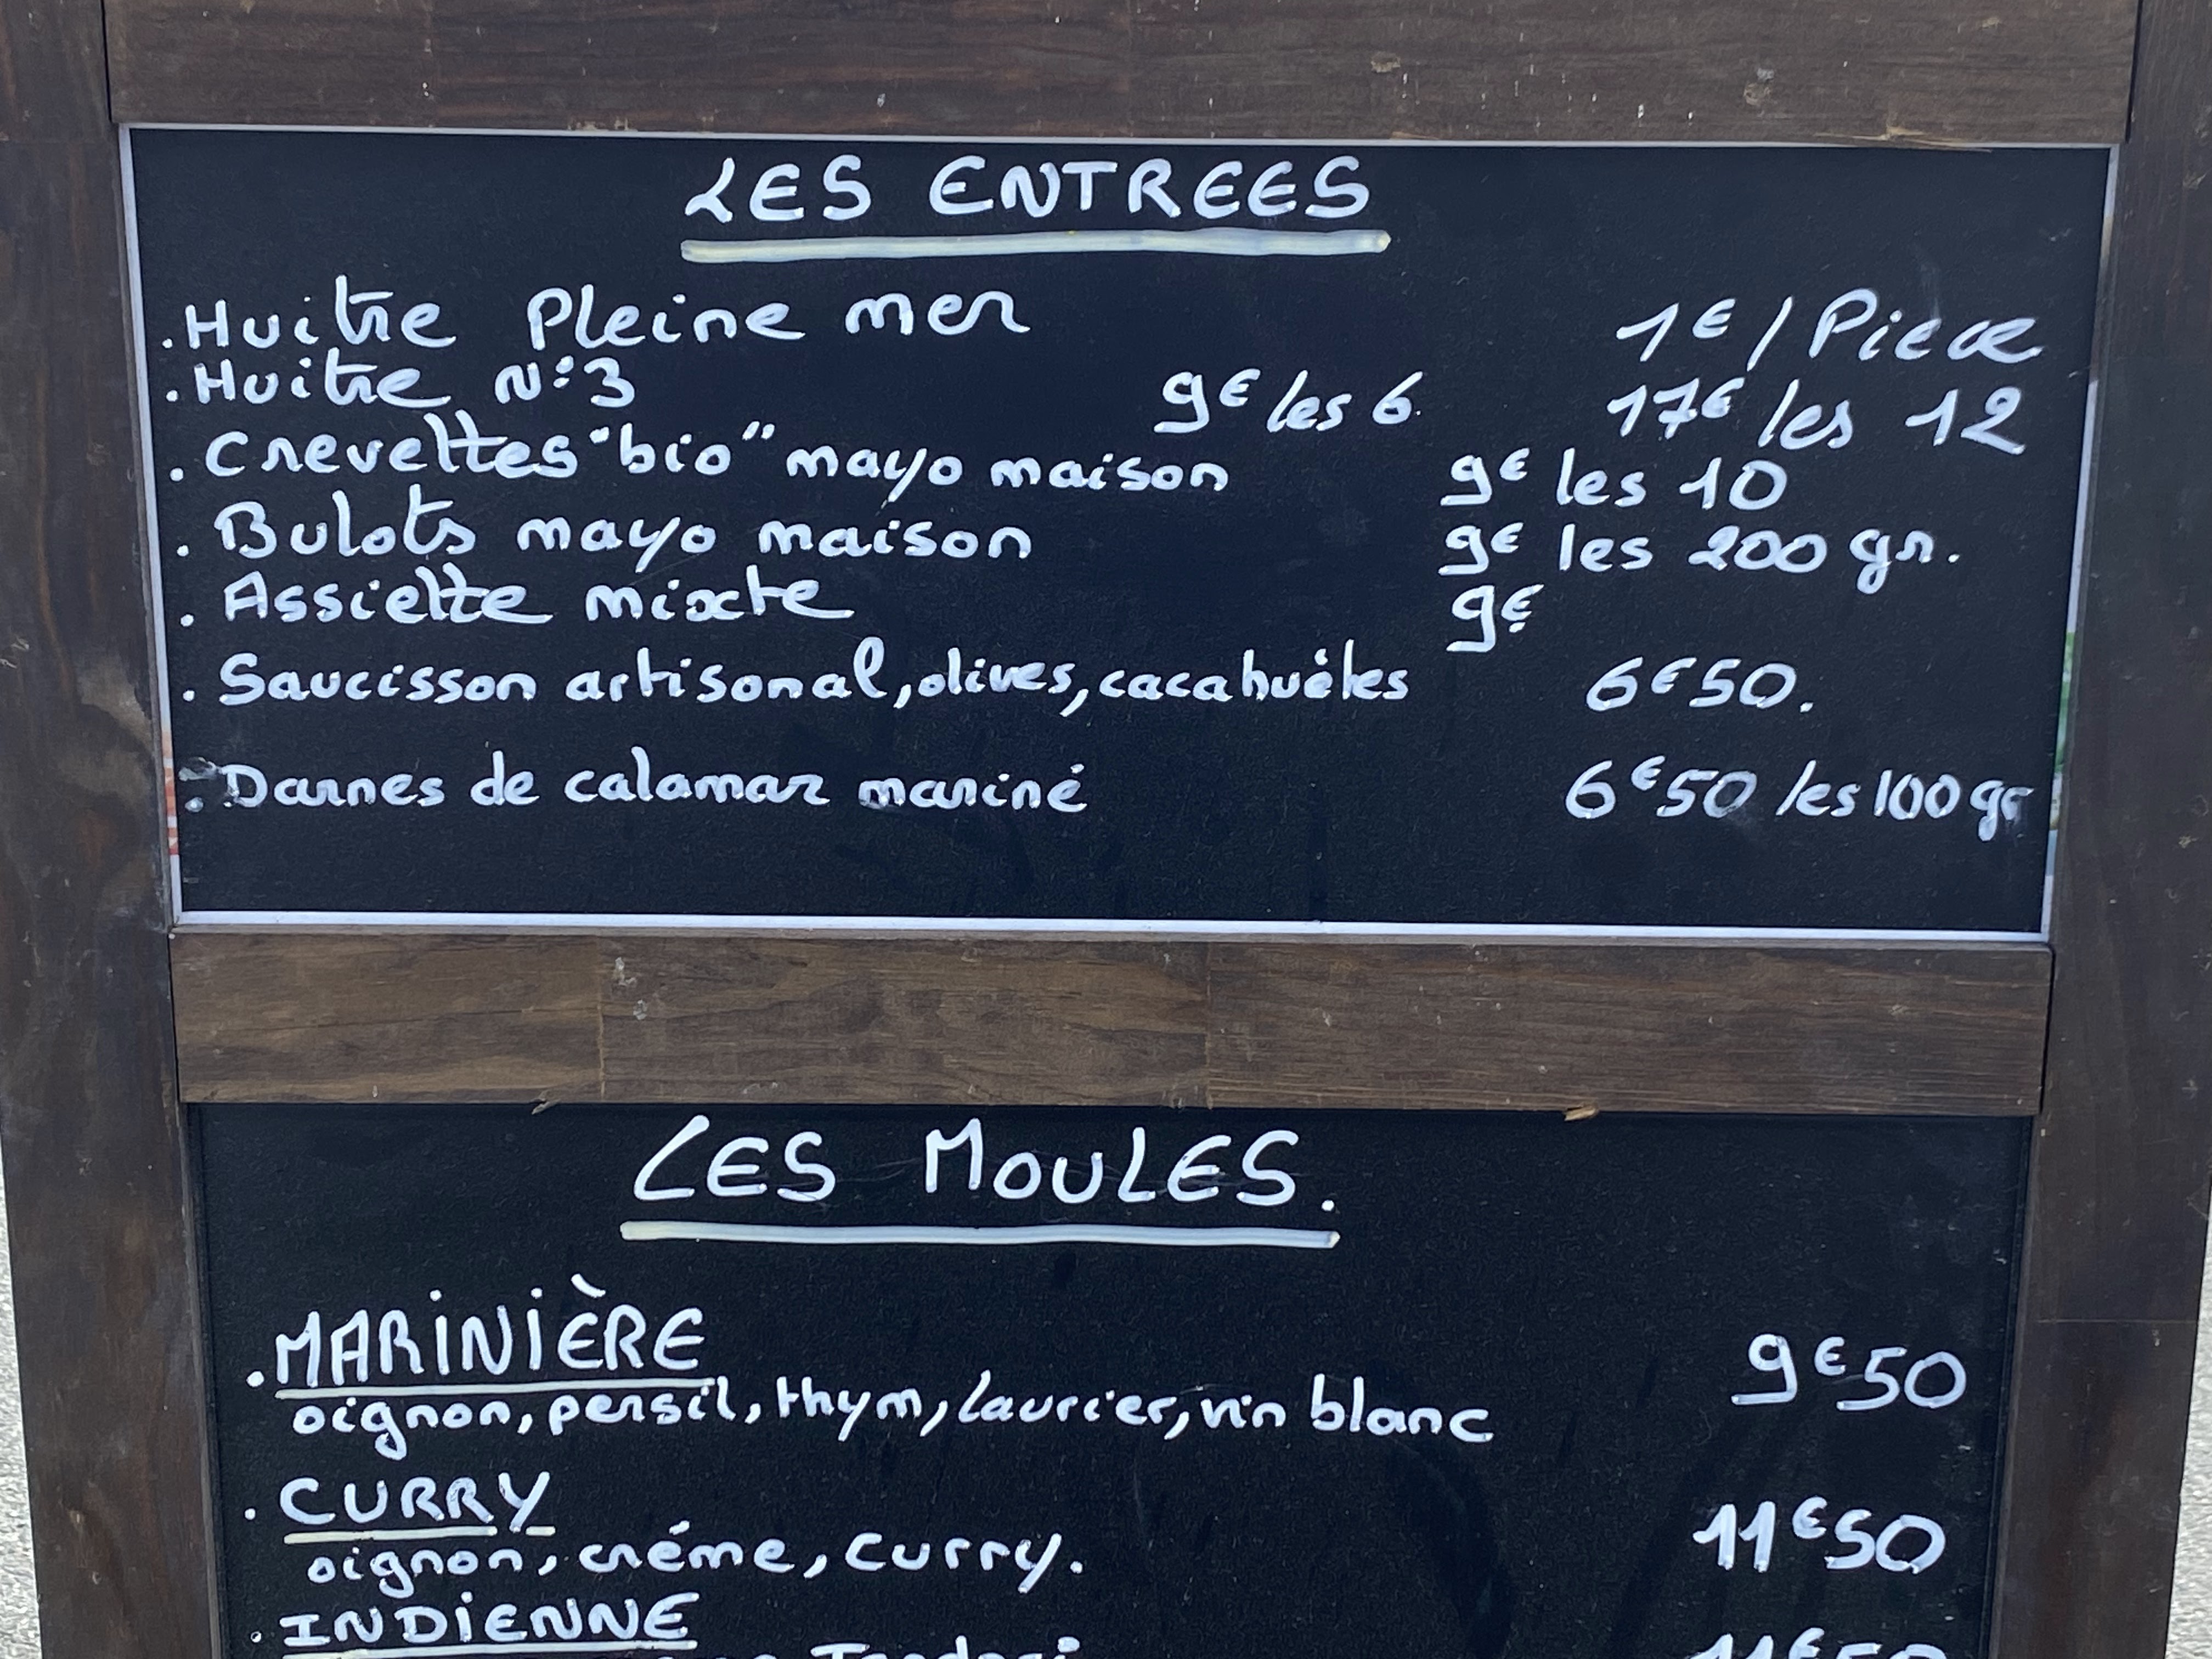 LES ENTREES
. Huitre Pleine mer 1€ / Piece
. Huitre N°3 9€ les 6. 17€ les 12
. Crevettes "bio" mayo maison 9€ les 10
. Bulots mayo maison 9€ les 200 gr.
. Assiette mixte 9€
. Saucisson artisonal, olives, cacahuètes 6€50.
. Darnes de calamar mariné 6€50 les 100 gr
LES MOULES.
. MARINIÈRE 9€50
oignon, persil, thym, laurier, vin blanc
. CURRY 11€50
oignon, créme, curry.
. INDIENNE 11€50